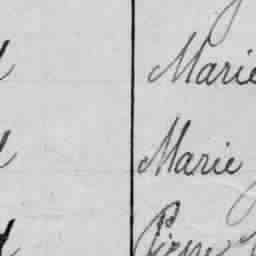 Marie
Marie
Pierre